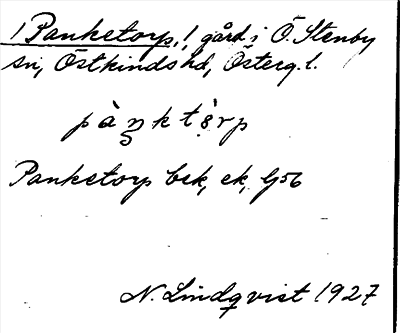 1 Panketorp, 1 gård i Ö. Stenby
sn, Östkinds hd, Österg. l.
pàŋktò̤rp
Panketorp bek, ek, G56
N. Lindqvist 1927